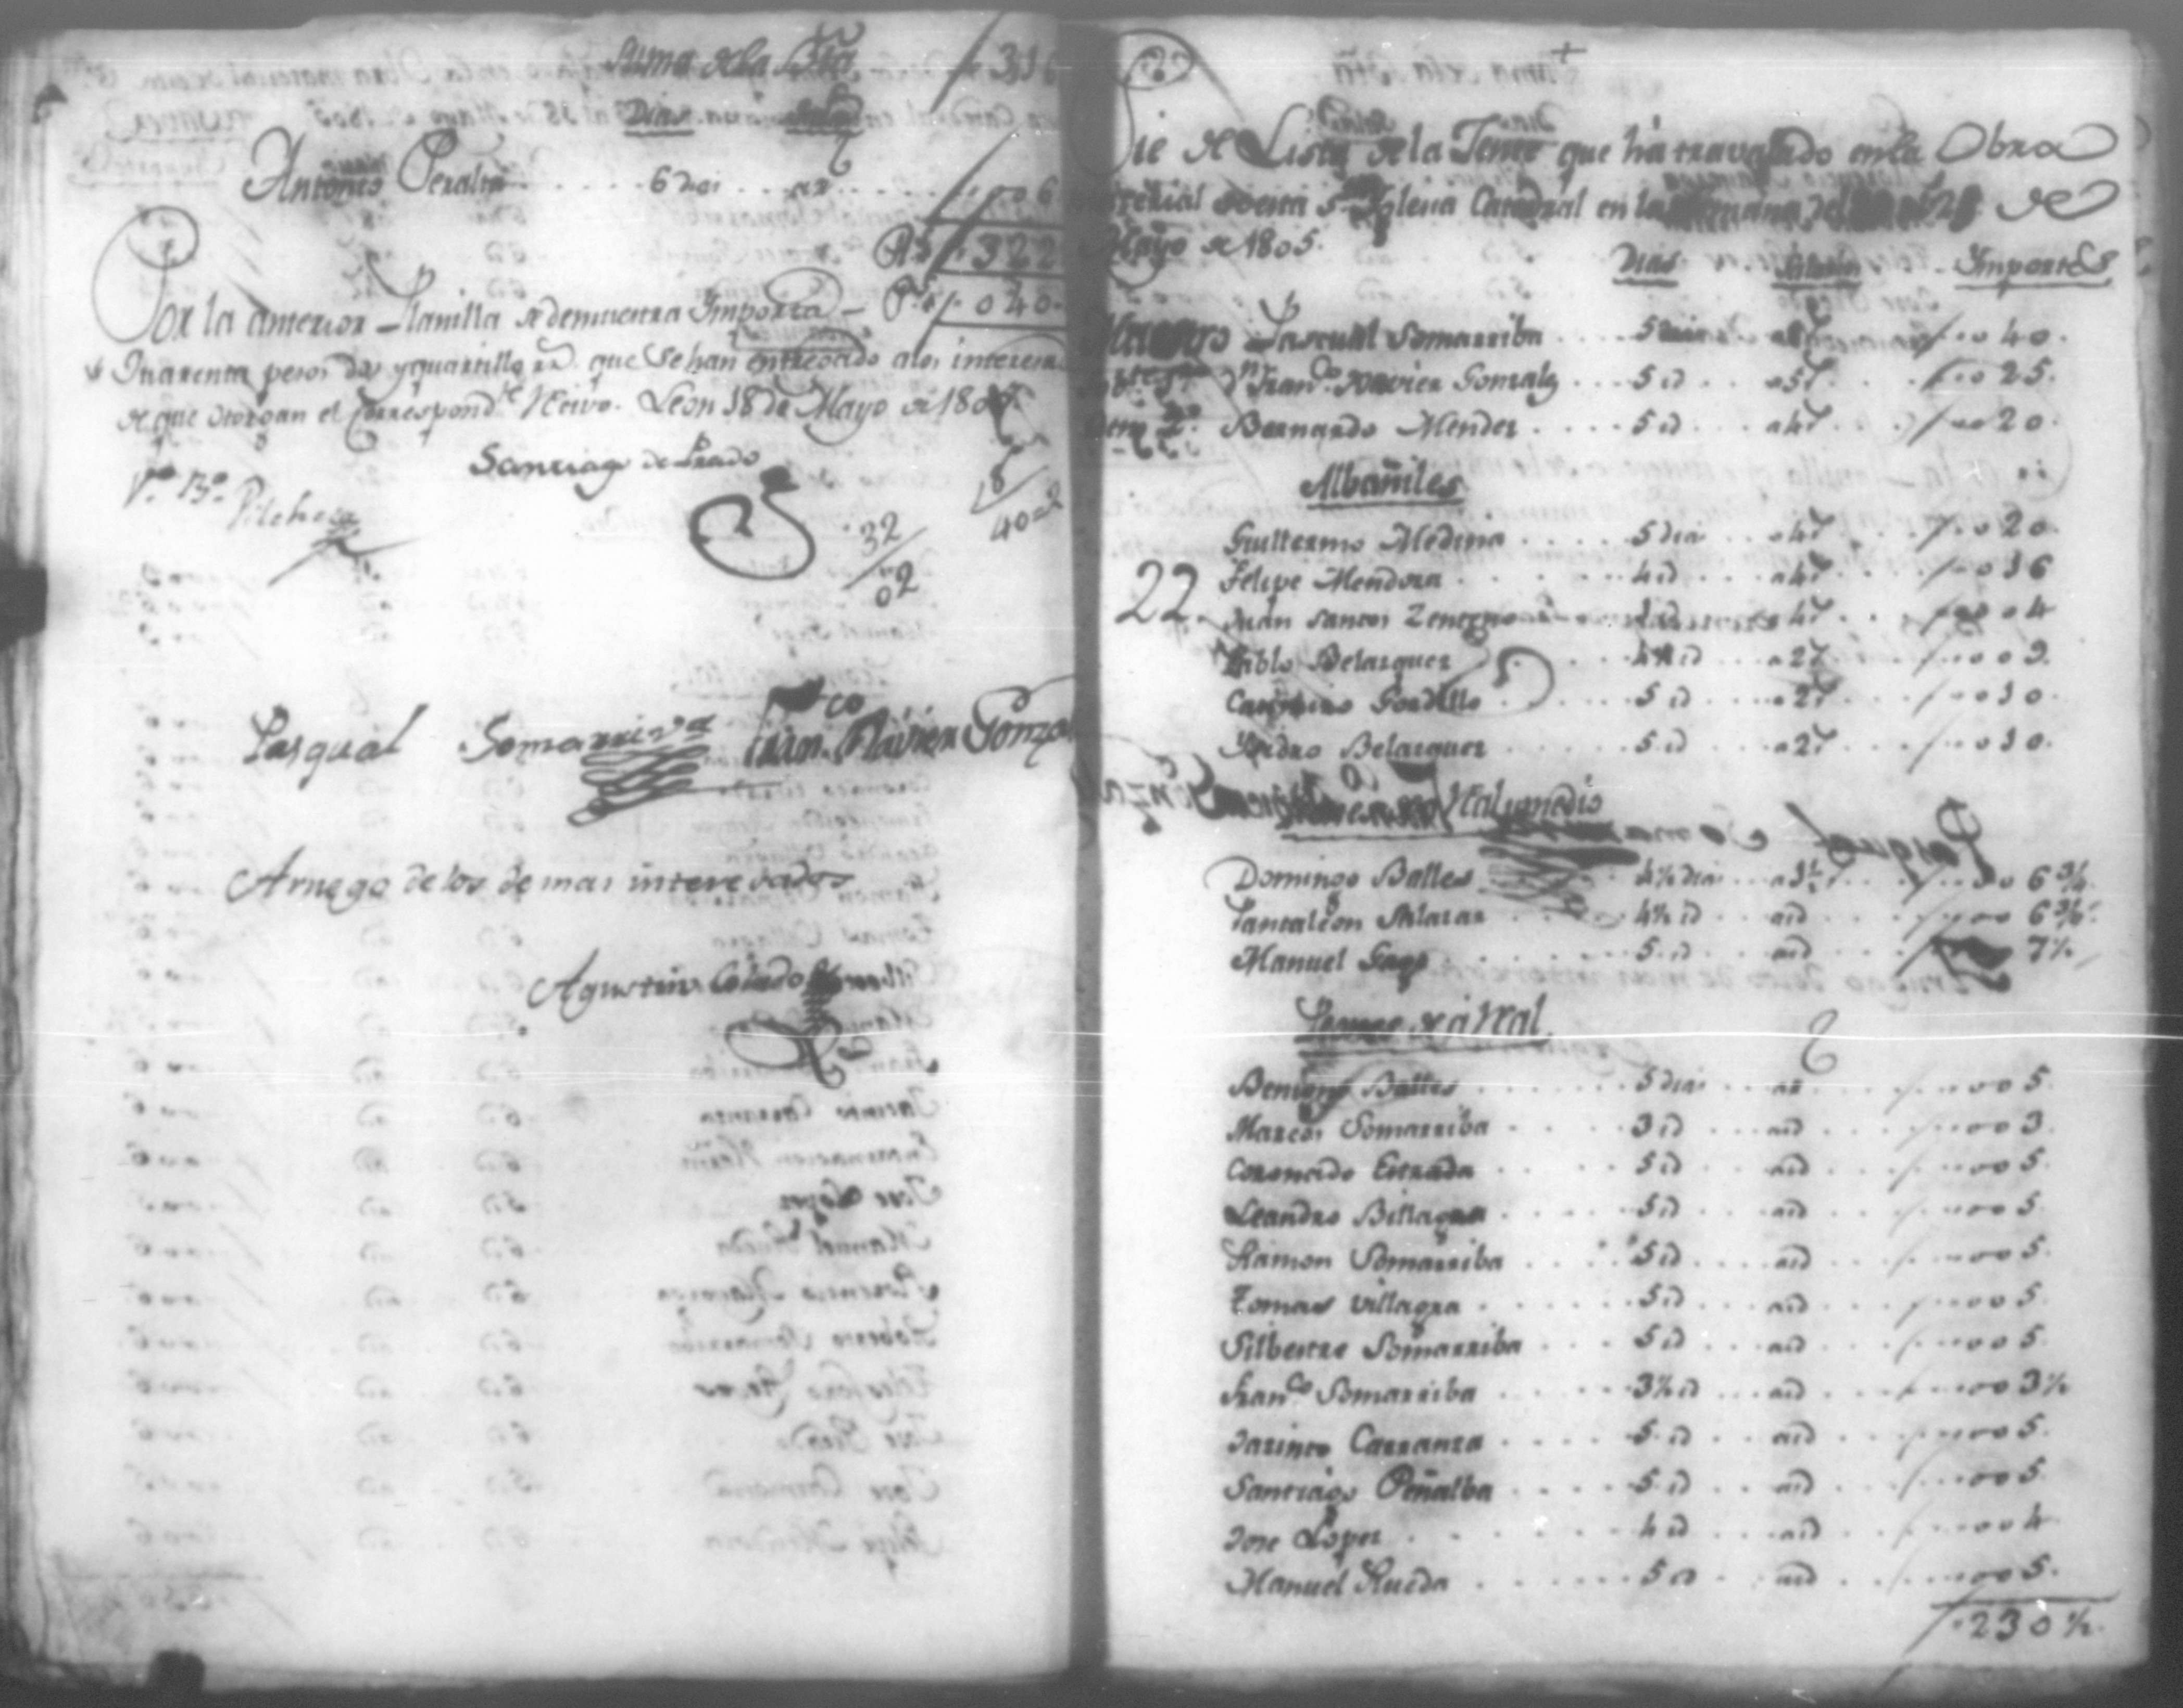 Suma de la Bta 316
Dias
Antonio Peralta 6 dias a 1 006
Rs 322
Por la anterior Planilla se demuestra Importa Ps 040
Quarenta pesos dos y quartillo rs. que se han entregado a los interes
de que otorgan el correspondte Recivo. Leon 18 de Mayo de 180
Santiago de Prado
Vo. Bo.
32
02
40=2
Pasqual Somarriva Franco Xavier Gonza
Arruego de los demas interezados
Agustin
22
Lista de la Jente que há travajado en la Obra
material de esta Sta Iglesia Catedral en la semana de
Mayo de 1805.
Dias Importes
Maestro Pascual Somarriba 5 dias 40.
Dn Franco Xavier Gonzalz 5 id a 5 25.
Bernardo Mendez 5 id a 4 20.
Albañiles
Guillermo Medina 5 dias a 4 20.
22. Felipe Mendoza 4 id a 4 16
Juan Santos Zenteno 1 id a 4 4
Pablo Belasquez 4½ id a 2 9.
Gordillo 5 id a 2 10.
Isidro Belasquez 5 id a 2 10.
Real y medio
Domingo Balles 4½ dias a 1½ 6 3/4
Pantaleon Salazar 4½ id a id 6 3/4
Manuel 5 id a id 7½
Peones de á Real
Benigno Balles 5 dias a 1 5.
Marcos Somarriba 3 id a id 3.
Coronado Estrada 5 id a id 5.
Leandro Billagra 5 id a id 5.
Ramon Somarriba 5 id a id 5.
Tomas Villagra 5 id a id 5.
Silbestre Somarriba 5 id a id 5.
Franco Somarriba 3½ id a id 3½
Jasinto Carranza 5 id a id 5.
Santiago Peñalba 5 id a id 5.
Jose Lopez 4 id a id 4.
Manuel Rueda 5 id a id 5.
230½.